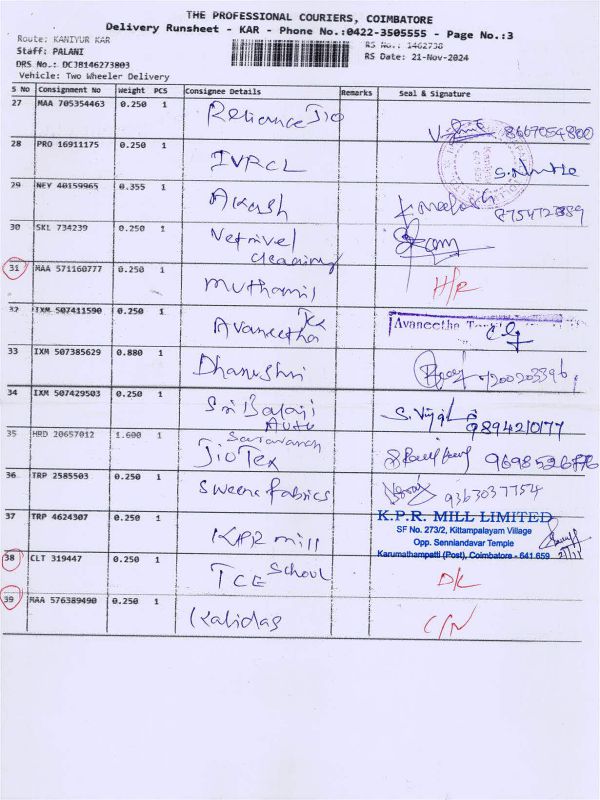 THE PROFESSIONAL COURIERS, COIMBATORE
Delivery Runsheet - KAR - Phone No.:0422-3505555 - Page No.:3
Route: KANIYUR KAR
RS No.: 1462738
Staff: PALANI
RS Date: 21-Nov-2024
DRS No.: DCJ8146273803
Vehicle: Two Wheeler Delivery
S No Consignment No Weight PCS Consignee Details Remarks Seal & Signature
27 MAA 705354463 0.250 1 Reliance Jio 8667054800
28 PRO 16911175 0.250 1 IVRCL
29 NEY 40159965 0.355 1 Akash
30 SKL 734239 0.250 1 Vetrivel
cleaning
31 MAA 571160777 0.250 1 Muthamil
32 IXM 507411590 0.250 1 Avaneetha Tex Avaneetha
33 IXM 507385629 0.880 1 Dhanushri
34 IXM 507429503 0.250 1 Sri Balaji
Auto
9894210177
35 HRD 20657012 1.600 1 Saravanah
Jio Tex
36 TRP 2585503 0.250 1 Sweena fabrics 9363037754
37 TRP 4624307 0.250 1 KPR mill
K.P.R. MILL LIMITED
SF No. 273/2, Kittampalayam Village
Opp. Senniandavar Temple
Karumathampatti (Post), Coimbatore - 641 659
38 CLT 319447 0.250 1 TCE School DK
39 MAA 576389490 0.250 1 Kalidas C/N